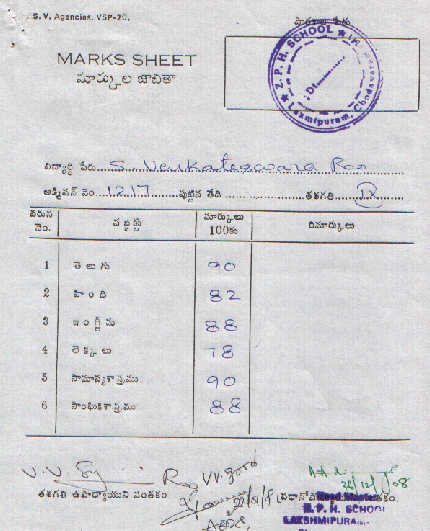 S. V. Agencies, VSP-20.
పాఠశాల పేరు
MARKS SHEET
మార్కుల జాబితా
Z. P. H. SCHOOL
Laxmipuram, Chodavaram
Dt
విద్యార్థి పేరు S. Venkateswara Rao
అడ్మిషన్ నెం. 1217 పుట్టిన తేది తరగతి IX
వరుస నెం. సబ్జక్టు మార్కులు 100కు రిమార్కులు
1 తెలుగు 90
2 హింది 82
3 ఇంగ్లీషు 88
4 లెక్కలు 78
5 సామాన్యశాస్త్రము 90
6 సాంఘికశాస్త్రము 88
తరగతి ఉపాధ్యాయుని సంతకం
Head Master
Z. P. H. SCHOOL
LAKSHMIPURAM